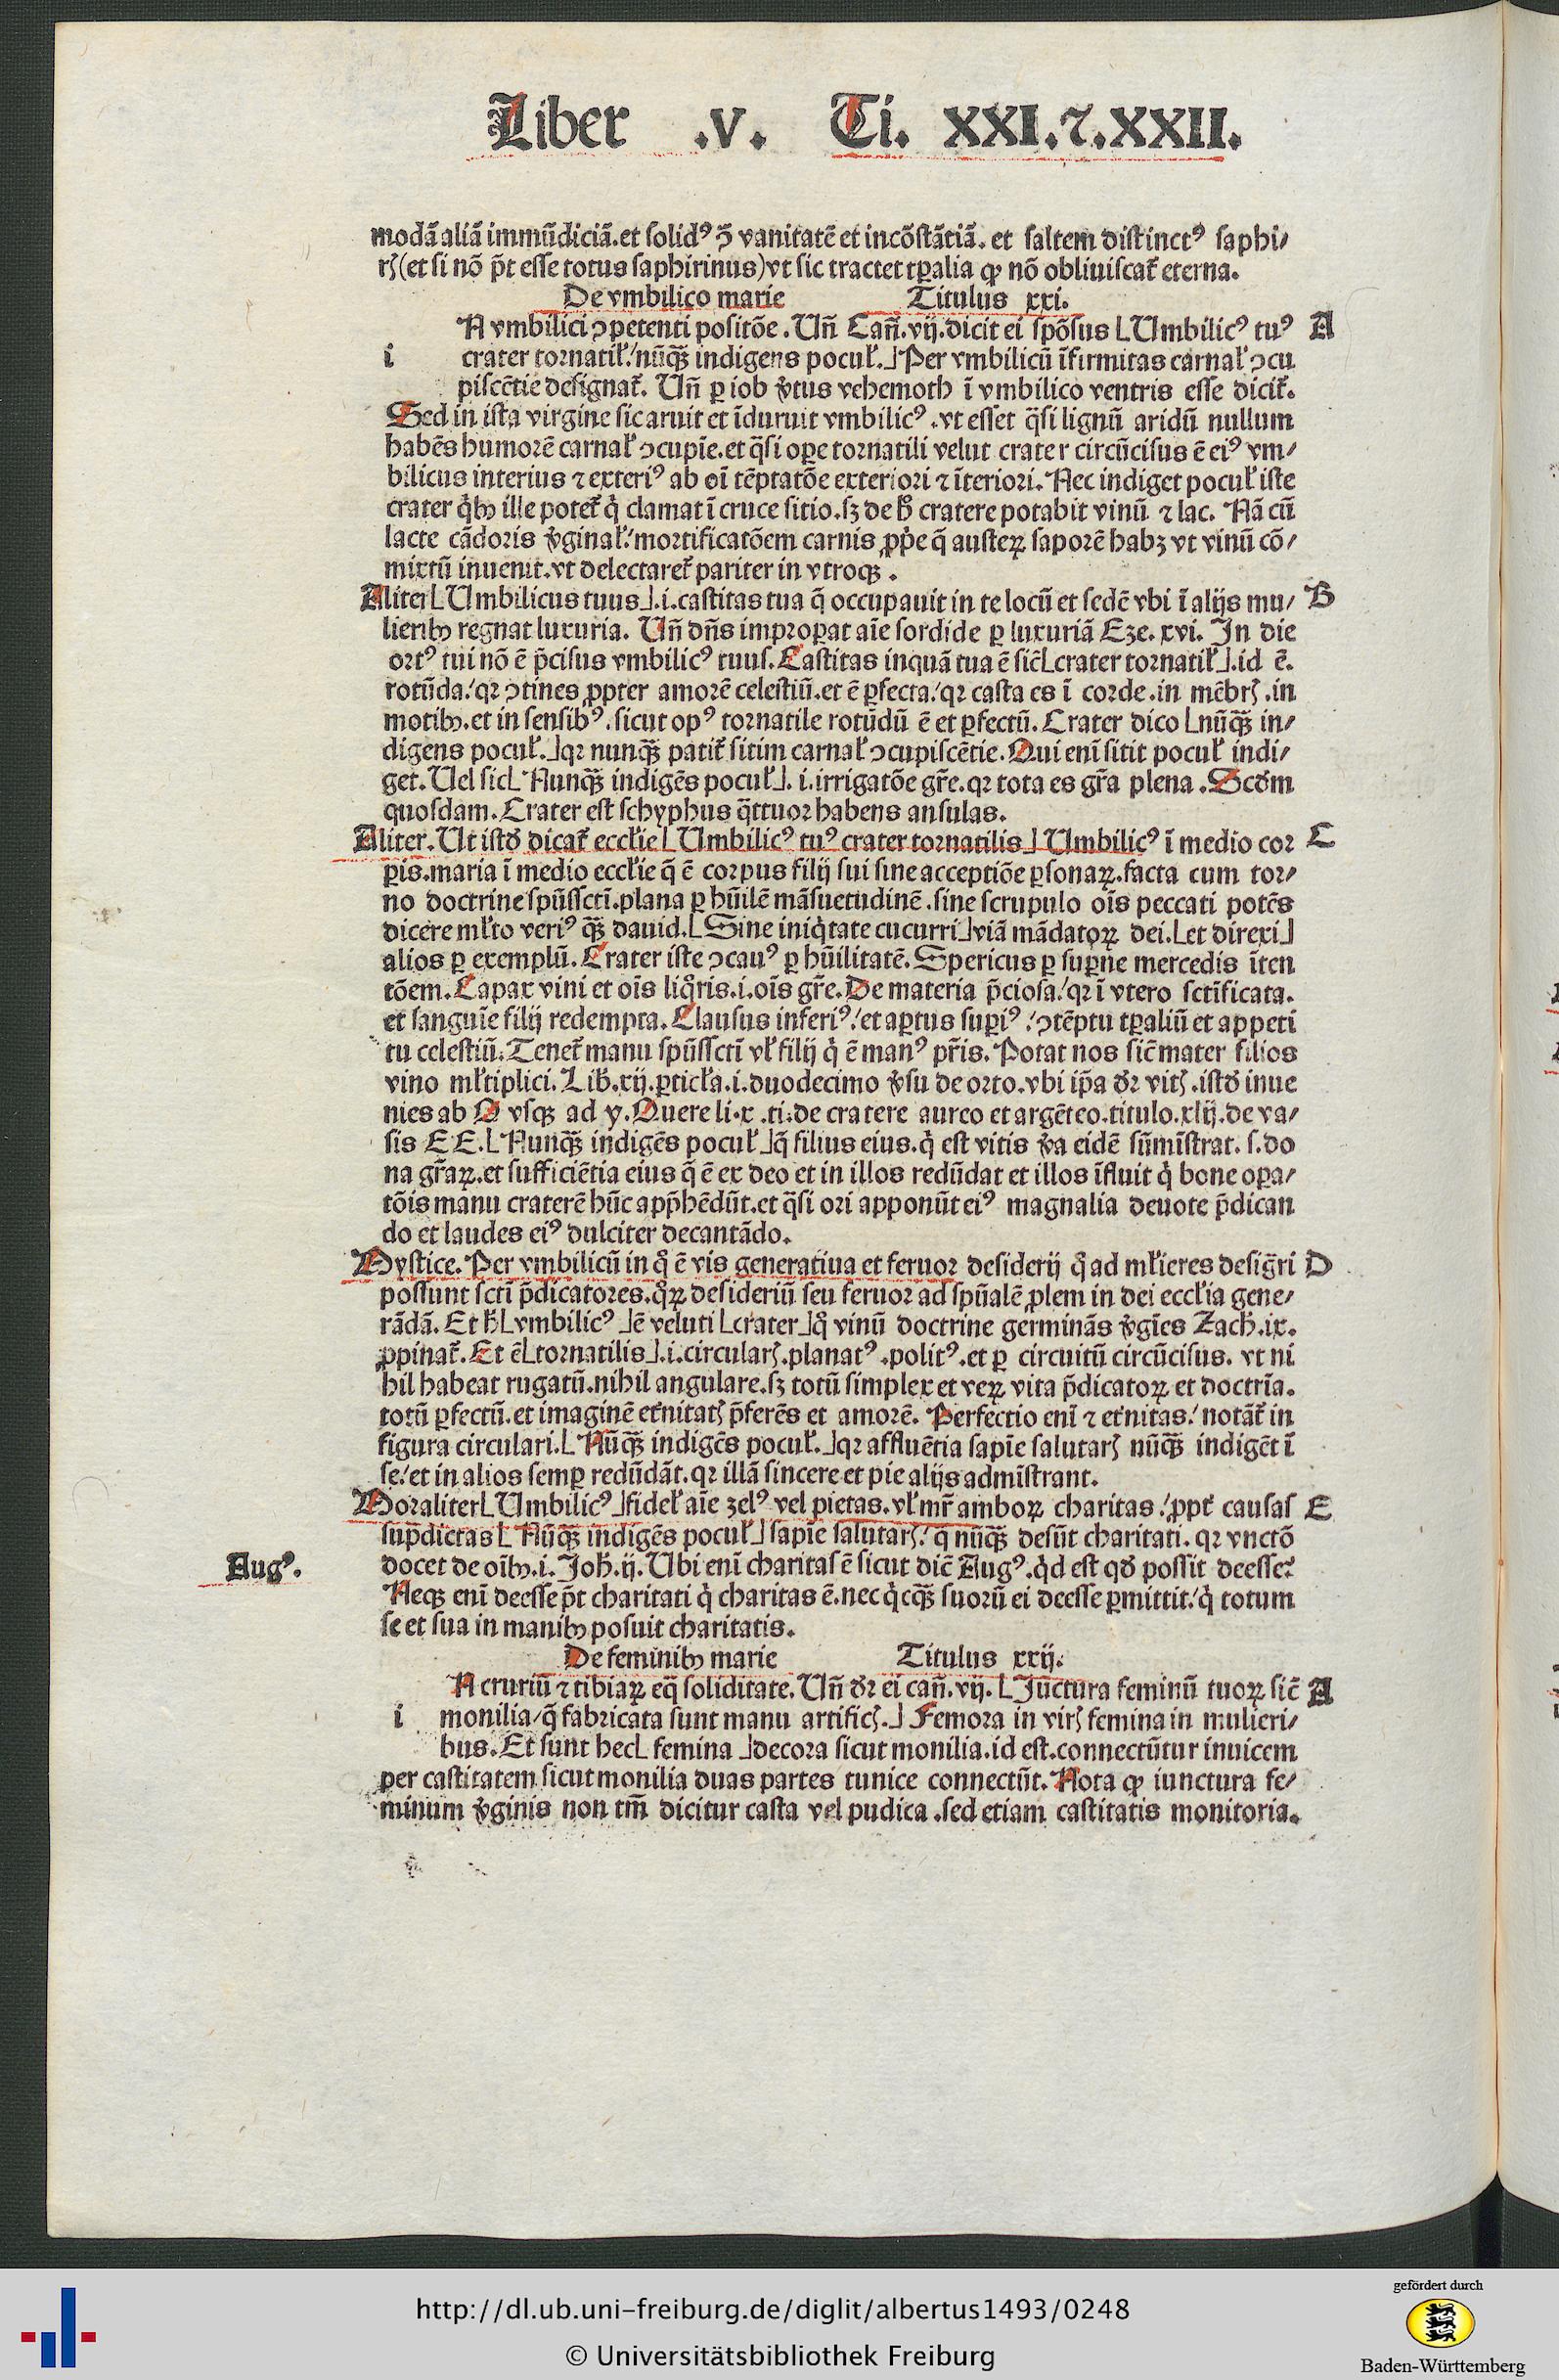 Liber .V. Ti. XXI.⁊.XXII.
modā aliā immūdiciā.et solidꝰ ↄ̄ vanitatē et incōstātiā. et saltem distinctꝰ saphi/
rꝭ(et si nō p̄t esse totus saphirinus)vt sic tractet tꝑalia ꝙ nō obliuiscat̄ eterna.
De vmbilico marie Titulus xxi.
N vmbilici ↄpetenti positōe. Uñ Cañ.vij.dicit ei spōsus ⌊Umbilicꝰ tuꝰ A
i crater tornatiƚ./nūꝗ̄ꝫ indigens pocuƚ.⌋Per vmbilicū īfirmitas carnaƚ ↄcu
piscētie designat̄. Uñ ꝑ iob v̓tus vehemoth ī vmbilico ventris esse dicit̄.
Sed in ista virgine sic aruit et īduruit vmbilicꝰ.vt esset q̄si lignū aridū nullum
habēs humorē carnaƚ ↄcupīe.et q̄si oꝑe tornatili velut crater circūcisus ē eiꝰ vm/
bilicus interius ⁊ exteriꝰ ab oī tēptatōe exteriori ⁊ īteriori. Nec indiget pocuƚ iste
crater q̇bꝰ ille potet̄ q̇ clamat ī cruce sitio.sꝫ de h̓ cratere potabit vinū ⁊ lac. Nā cū
lacte cādoris v̓ginaƚ./mortificatōem carnis ꝓp̄e q̄ austeꝝ saporē habꝫ vt vinū cō/
mixtū inuenit.vt delectaret̄ pariter in vtroqꝫ.
Aliter⌊Umbilicus tuus⌋.i.castitas tua q̄ occupauit in te locū et sedē vbi ī alijs mu/ B
lieribꝰ regnat luxuria. Uñ dñs impꝛoꝑat aīe sordide ꝑ luxuriā Eze. xvi. In die
ortꝰ tui nō ē p̄cisus vmbilicꝰ tuus. Castitas inquā tua ē sic̄⌊crater tornatiƚ⌋.id ē.
rotūda./qꝛ ↄtines ꝓpter amorē celestiū.et ē ꝑfecta./qꝛ casta es ī corde.in mēbrꝭ.in
motibꝰ.et in sensibꝰ.sicut opꝰ tornatile rotūdū ē et ꝑfectū. Crater dico ⌊nūꝗ̄ꝫ in/
digens pocuƚ.⌋qꝛ nunꝗ̄ꝫ patit̄ sitim carnaƚ ↄcupiscētie. Qui enī sitit pocuƚ indi/
get. Uel sic⌊ Nunꝗ̄ꝫ indigēs pocuƚ⌋. i.irrigatōe gr̄e.qꝛ tota es gr̄a plena. Scd̓m
quosdam. Crater est schyphus q̄ttuor habens ansulas.
Aliter. Ut istd̓ dicat̄ eccƚie⌊ Umbilicꝰ tuꝰ crater tornatilis⌋ Umbilicꝰ ī medio cor C
ꝑis.maria ī medio eccƚie q̄ ē corpus filij sui sine acceptiōe ꝑsonaꝝ.facta cum tor/
no doctrine spūssctī.plana ꝑ hūilē māsuetudinē.sine scrupulo oīs peccati potēs
dicere mƚto veriꝰ ꝗ̄ꝫ dauid.⌊ Sine iniq̇tate cucurri⌋viā mādatoꝝ dei.⌊et direxi⌋
alios ꝑ exemplū. Crater iste ↄcauꝰ ꝑ hūilitatē. Spericus ꝑ suꝑne mercedis īten
tōem. Capax vini et oīs liq̊ris.i.oīs gr̄e. De materia p̄ciosa./qꝛ ī vtero sctīficata.
et sanguīe filij redempta. Clausus inferiꝰ./et aꝑtus suꝑiꝰ./ↄtēptu tꝑaliū et appeti
tu celestiū. Tenet̄ manu spūssctī vƚ filij q̇ ē manꝰ pr̄is. Potat nos sic̄ mater filios
vino mƚtiplici. Lib̓.xij.ꝑticƚa.i.duodecimo v̓su de orto.vbi ip̄a d̓r vitꝭ.istd̓ inue
nies ab Q vsqꝫ ad y. Quere li.x .ti.de cratere aureo et argēteo.titulo.xlij.de va/
sis EE.⌊ Nunꝗ̄ꝫ indigēs pocuƚ⌋q̄ filius eius.q̇ est vitis v̓a eidē sūmīstrat. s.do
na gr̄aꝝ.et sufficiētia eius q̄ ē ex deo et in illos redūdat et illos īfluit q̇ bone oꝑa/
tōis manu craterē hūc app̄hēdūt.et q̄si ori apponūt eiꝰ magnalia deuote p̄dican
do et laudes eiꝰ dulciter decantādo.
Mystice. Per vmbilicū in q̊ ē vis generatiua et feruor desiderij q̊ ad mƚieres desiḡri D
possunt sctī p̄dicatores.q̊ꝝ desideriū seu feruor ad spūalē ꝓlem in dei eccƚia gene/
rādā. Et h̓⌊vmbilicꝰ⌋ē veluti ⌊crater⌋q̊ vinū doctrine germinās v̓gīes Zach̓.ix.
ꝓpinat̄. Et ē⌊tornatilis⌋.i.circularꝭ.planatꝰ.politꝰ.et ꝑ circuitū circūcisus. vt ni
hil habeat rugatū.nihil angulare.sꝫ totū simplex et veꝝ vita p̄dicatoꝝ et doctrīa.
totū ꝑfectū.et imaginē et̓nitatꝭ p̄ferēs et amorē. Perfectio enī ⁊ et̓nitas./notāt̄ in
figura circulari.⌊ Nūꝗ̄ꝫ indigēs pocuƚ.⌋qꝛ affluētia sapīe salutarꝭ nūꝗ̄ꝫ indigēt ī
se./et in alios semꝑ redūdāt.qꝛ illā sincere et pie alijs admīstrant.
Moraliter⌊ Umbilicꝰ⌋fideƚ aīe zelꝰ vel pietas.vƚ mr̄ amboꝝ charitas./ꝓpt̓ causas E
sup̄dictas⌊ Nūꝗ̄ꝫ indigēs pocuƚ⌋sapīe salutarꝭ./q̄ nūꝗ̄ꝫ desūt charitati. qꝛ vnctō
Augꝰ. docet de oībꝰ.i. Joh̓.ij. Ubi enī charitas ē sicut dic̄ Augꝰ.q̇d est qd̓ possit deesse?
Neqꝫ enī deesse p̄t charitati q̇ charitas ē.nec q̇cꝗ̄ꝫ suorū ei deesse ꝑmittit./q̇ totum
se et sua in manibꝰ posuit charitatis.
De feminibꝰ marie Titulus xxij.
N cruriū ⁊ tibiaꝝ eq̄ soliditate. Uñ d̓r ei cañ.vij. ⌊Jūctura feminū tuoꝝ sic̄ A
i monilia/q̄ fabricata sunt manu artificꝭ.⌋ Femora in virꝭ femina in mulieri/
bus. Et sunt hec⌊ femina ⌋decora sicut monilia.id est.connectūtur inuicem
per castitatem sicut monilia duas partes tunice connectūt. Nota ꝙ iunctura fe/
minum v̓ginis non tm̄ dicitur casta vel pudica .sed etiam castitatis monitoria.
http://dl.ub.uni-freiburg.de/diglit/albertus1493/0248
© Universitätsbibliothek Freiburg
gefördert durch
Baden-Württemberg